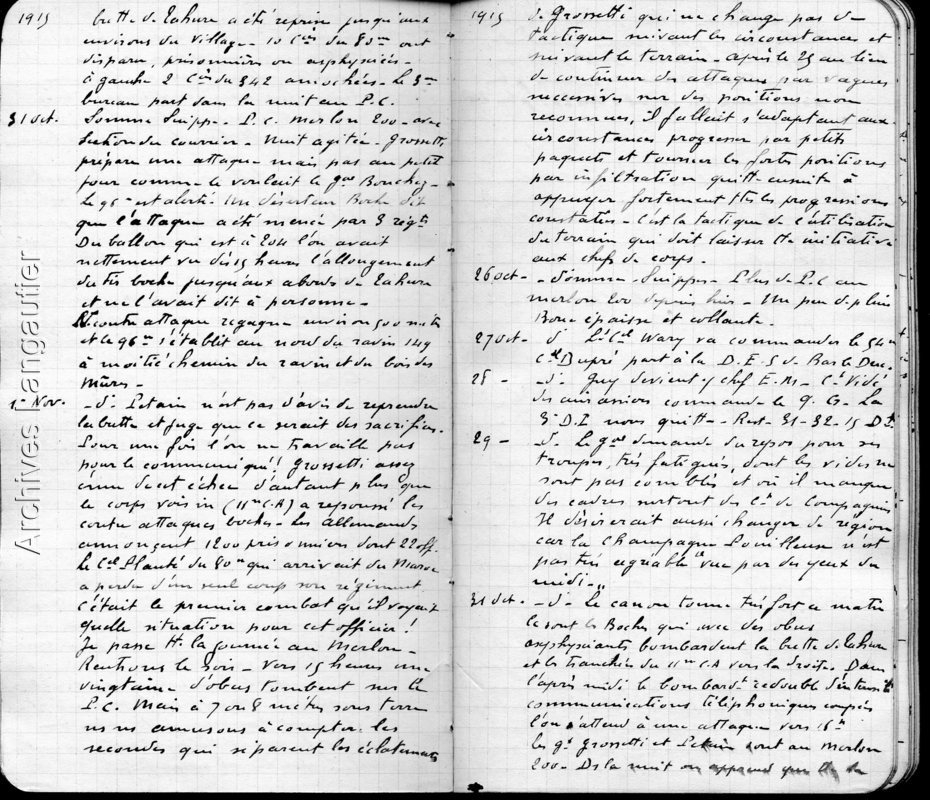 1915
butte de Tahure a été reprise jusqu'aux
environs du village - 10 Cies du 80me ont
disparu, prisonnières ou asphyxiées -
à gauche 2 Cies du 342 amochées - le 3me
bureau part dans la nuit au P.C.
31 oct. Somme Suippe - P.C. Merlon 200 - avec
Section du courrier - Nuit agitée - Grossetti
prépare une attaque mais pas au petit
jour comme le voulait le gal Bouchez -
Le 96me est alerté. Un déserteur Boche dit
que l'attaque a été menée par 3 régts
Du ballon qui est à 204 l'on avait
nettement vu dès 15 heures l'allongement
du tir boche jusqu'aux abords de Tahure
et ne l'avait dit à personne -
contre attaque regagne environ 500 mètres
et le 96me s'établit au nord du ravin 149
à moitié chemin du ravin et du bois des
Mûres -
1er Nov. - d° Pétain n'est pas d'avis de reprendre
la butte et juge que ce serait des sacrifices.
Pour une fois l'on ne travaille pas
pour le communiqué! Grossetti assez
ému de cet échec d'autant plus que
le corps voisin (11me C.A) a repoussé les
contre attaques boches - Les Allemands
annonçent 1200 prisonniers dont 22 off.
Le Cel Planté du 80me qui arrivait du Maroc
a perdu d'un seul coup son régiment
c'était le premier combat qu'il voyait
quelle situation pour cet officier!
Je passe tte la journée au Merlon -
Rentrons le soir - vers 15 heures une
vingtaine d'obus tombent sur le
P.C. Mais à 7 ou 8 mètres sous terre
ns ns amusons à compter les
secondes qui séparent les éclatements
1915
de Grossetti qui ne change pas de
tactique suivant les circonstances et
suivant le terrain - après le 25 au lieu
de continuer des attaques par vagues
successives sur des positions non
reconnues, il fallait s'adaptant aux
circonstances progresser par petits
paquets et tourner les fortes positions
par infiltration quitte ensuite à
appuyer fortement ttes les progressions
constatées - c'est la tactique de l'utilisation
du terrain qui doit laisser tte initiative
aux chefs de corps.
26 oct - - Somme Suippe - Plus de P.C. au
merlon 200 depuis hier - Un peu de pluie
Boue épaisse et collante.
27 Oct - d° Lt Cel Wary va commander le 342
Cel Dupré part à la D.E.S de Bar le Duc -
28 - - d° Guy devient s/ chef E.M - Ct Vidé
des missions commande le Q.G. La
3e D.I nous quitte - Rest. 31 - 32 - 15 D.I.
29 - - d° Le gal demande du repos pour ses
troupes, très fatiguées, dont les vides ne
sont pas comblés et où il manque
des cadres surtout des Ct de Compagnies
Il désirerait aussi changer de région
car la Champagne Pouilleuse n'est
pas très agréable vue par des yeux du
midi -
31 Oct. - d° Le canon tonne très fort ce matin
ce sont les Boches qui avec des obus
asphyxiants bombardent la butte de Tahure
et les tranchées du 11me C.A vers la droite. Dans
l'après midi le bombardt redouble d'intensité
communications téléphoniques coupées
l'on s'attend à une attaque vers 16h
les gx Grossetti et Pétain sont au Merlon
200 - Ds la nuit on apprend que tte la
Archives Langautier